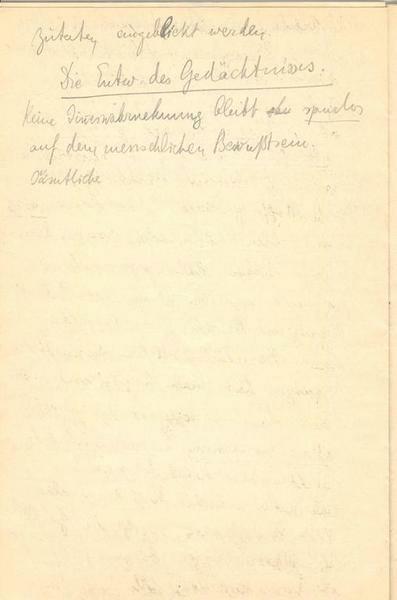 Zutaten eingeblickt werden.
Die Entw. des Gedächtnisses.
Keine Sinneswahrnehmung bleibt spurlos
auf dem menschlichen Bewußtsein.
Sämtliche